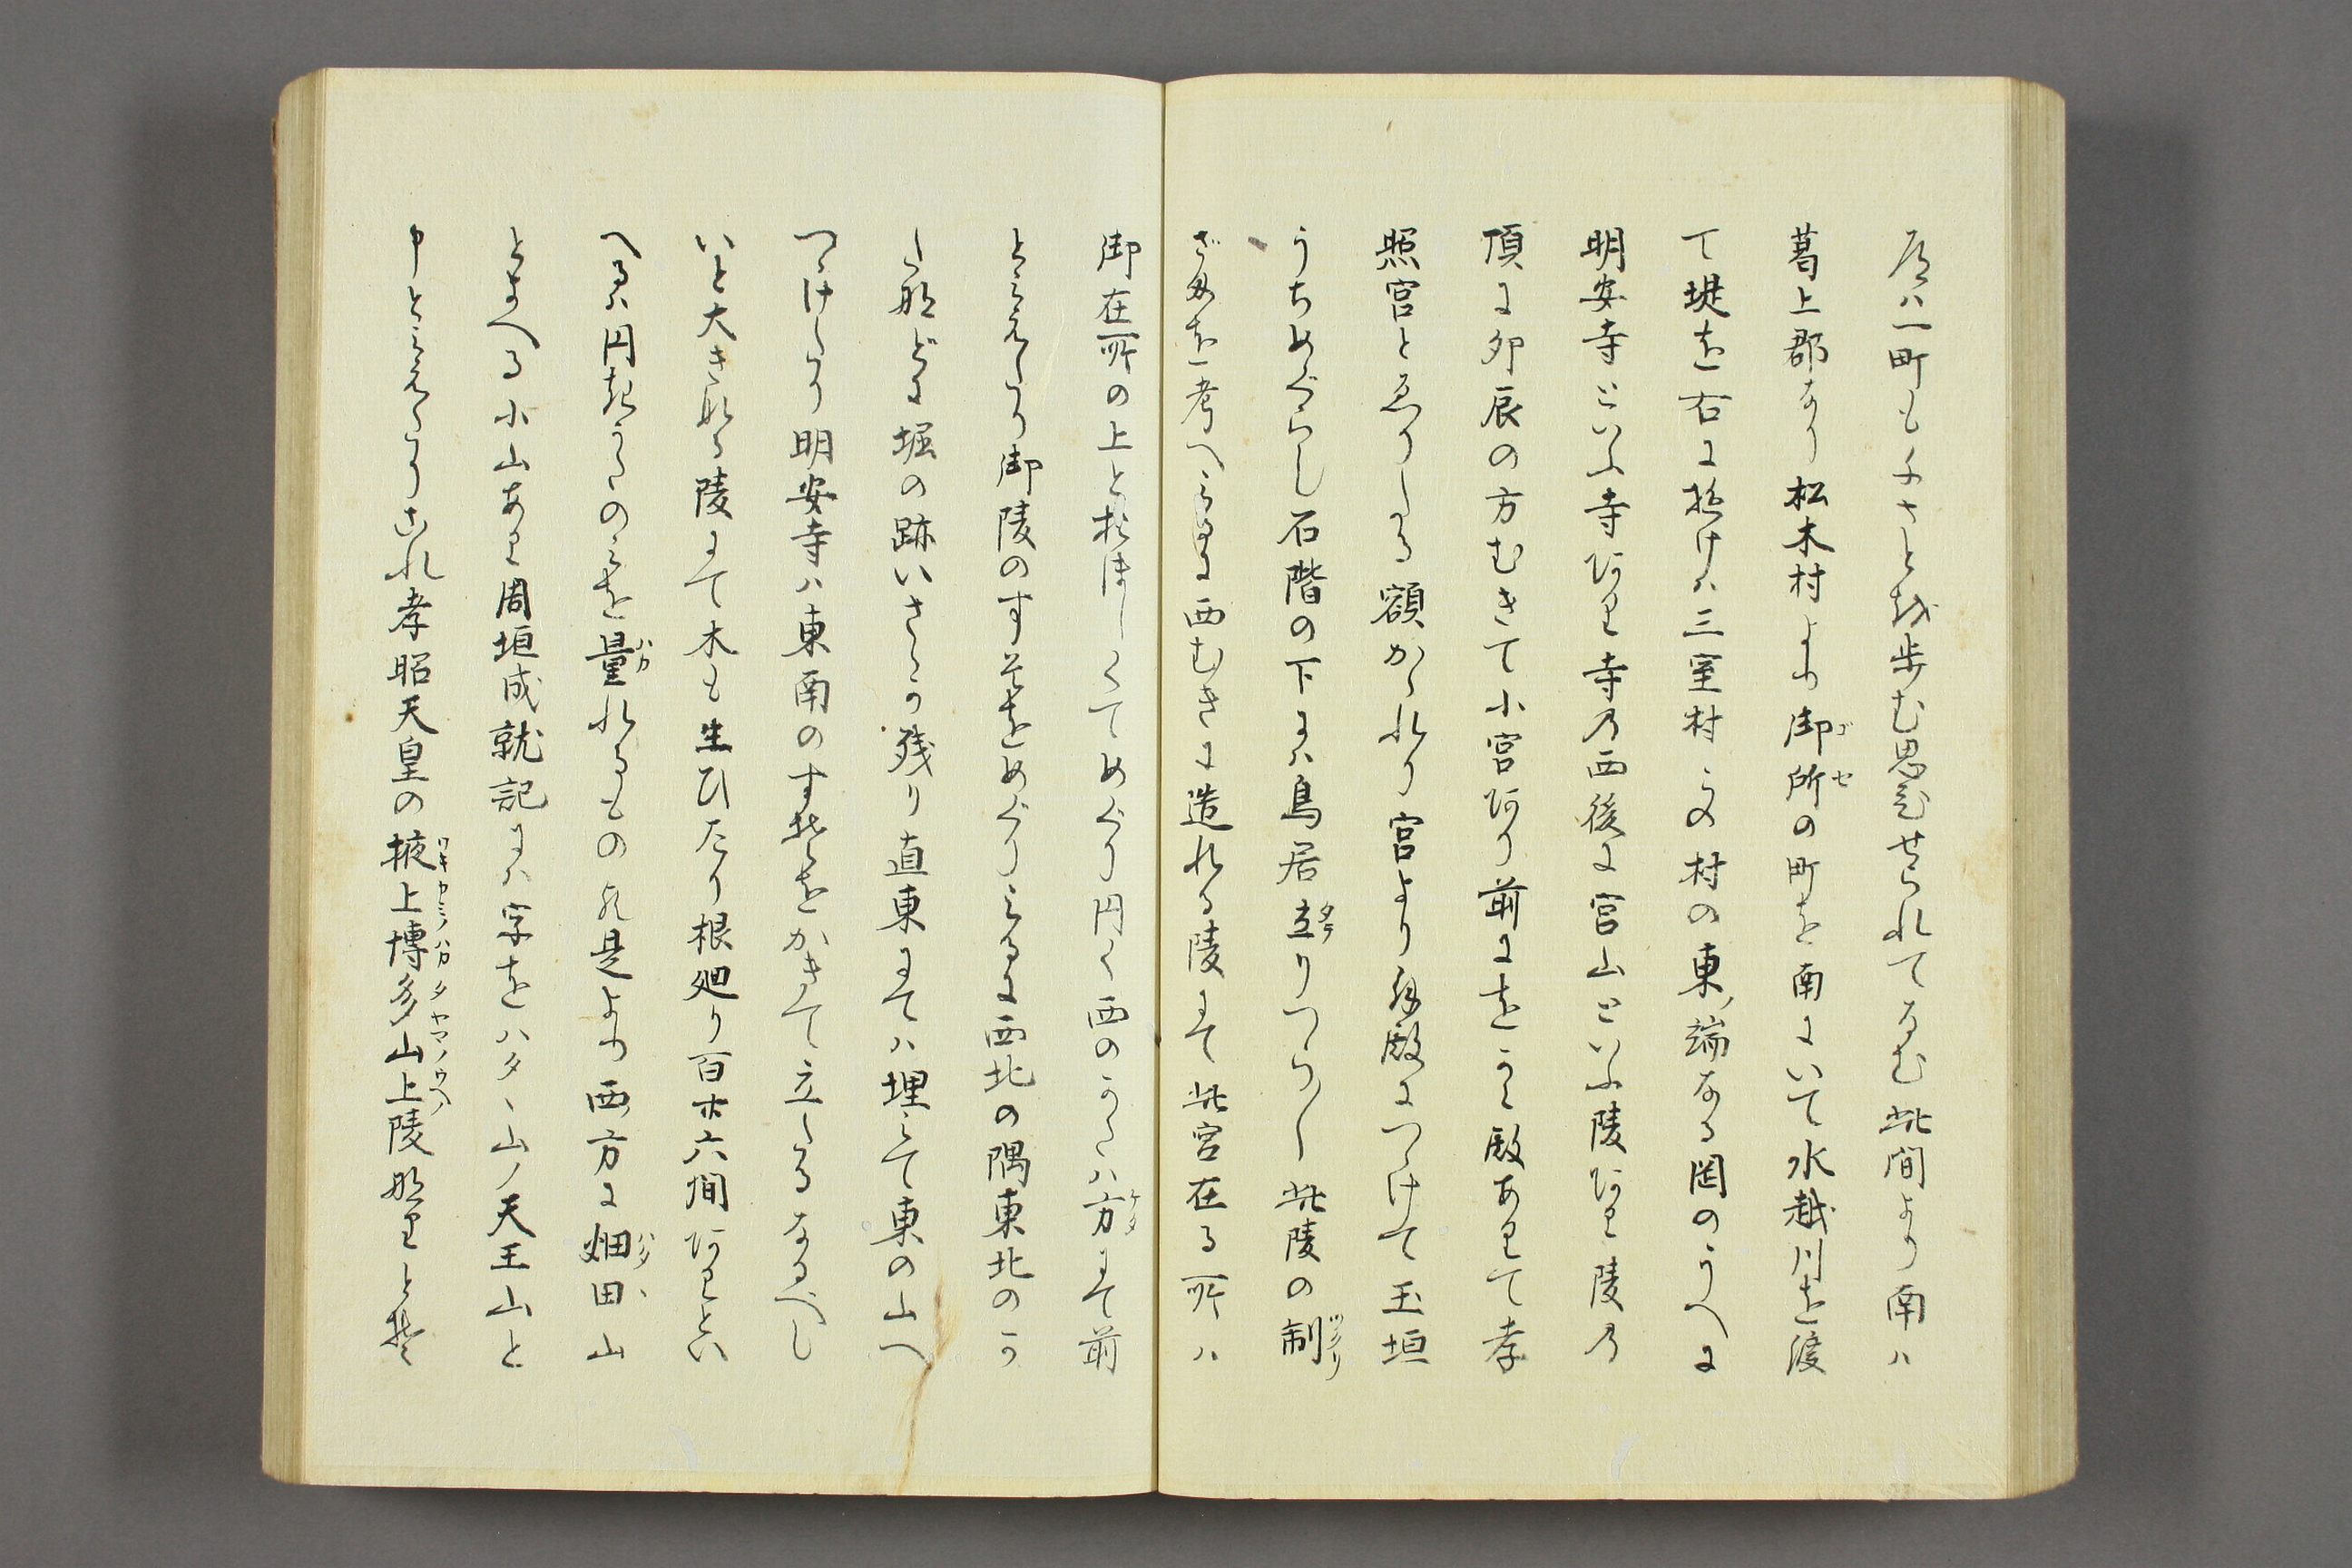 尽ハ一町も千さと越歩む思ひせられてなむ此間より南ハ
葛上郡なり松本村より御所の町を南にいて水越川を渡
て堤を右に折けハ三室村この村の東ノ端なる岡のうへに
明安寺といふ寺阿り寺乃西後に宮山といふ陵阿り陵乃
頂に卯辰の方むきて小宮阿り前にをかみ殿ありて孝
照宮とゑりたる額かゝれり宮より拝殿につゝけて玉垣
うちめくらし石階の下にハ鳥居立りつらつら此陵の制
ざまを考へみるに西むきに造れる陵にて此宮在る所ハ
御在所の上とおほしくてめくり円く西のかたハ方にて前
とみえたり御陵のすそをめくりみるに西北の隅東北のか
た那とに堀の跡いさゝか残り直東にてハ埋みて東の山へ
つゝけたり明安寺ハ東南のすそをかきて立たるなるべし
いと大きなる陵にて木も生ひたり根廻り百廿六間阿りとい
へるハ円きかたのみを量れるものか是より西方に畑田山
となへる小山あり周垣成就記にハ字をハタヽ山ノ天王山と
申とみえたりこれ孝昭天皇の掖上博多山上陵那りとそ